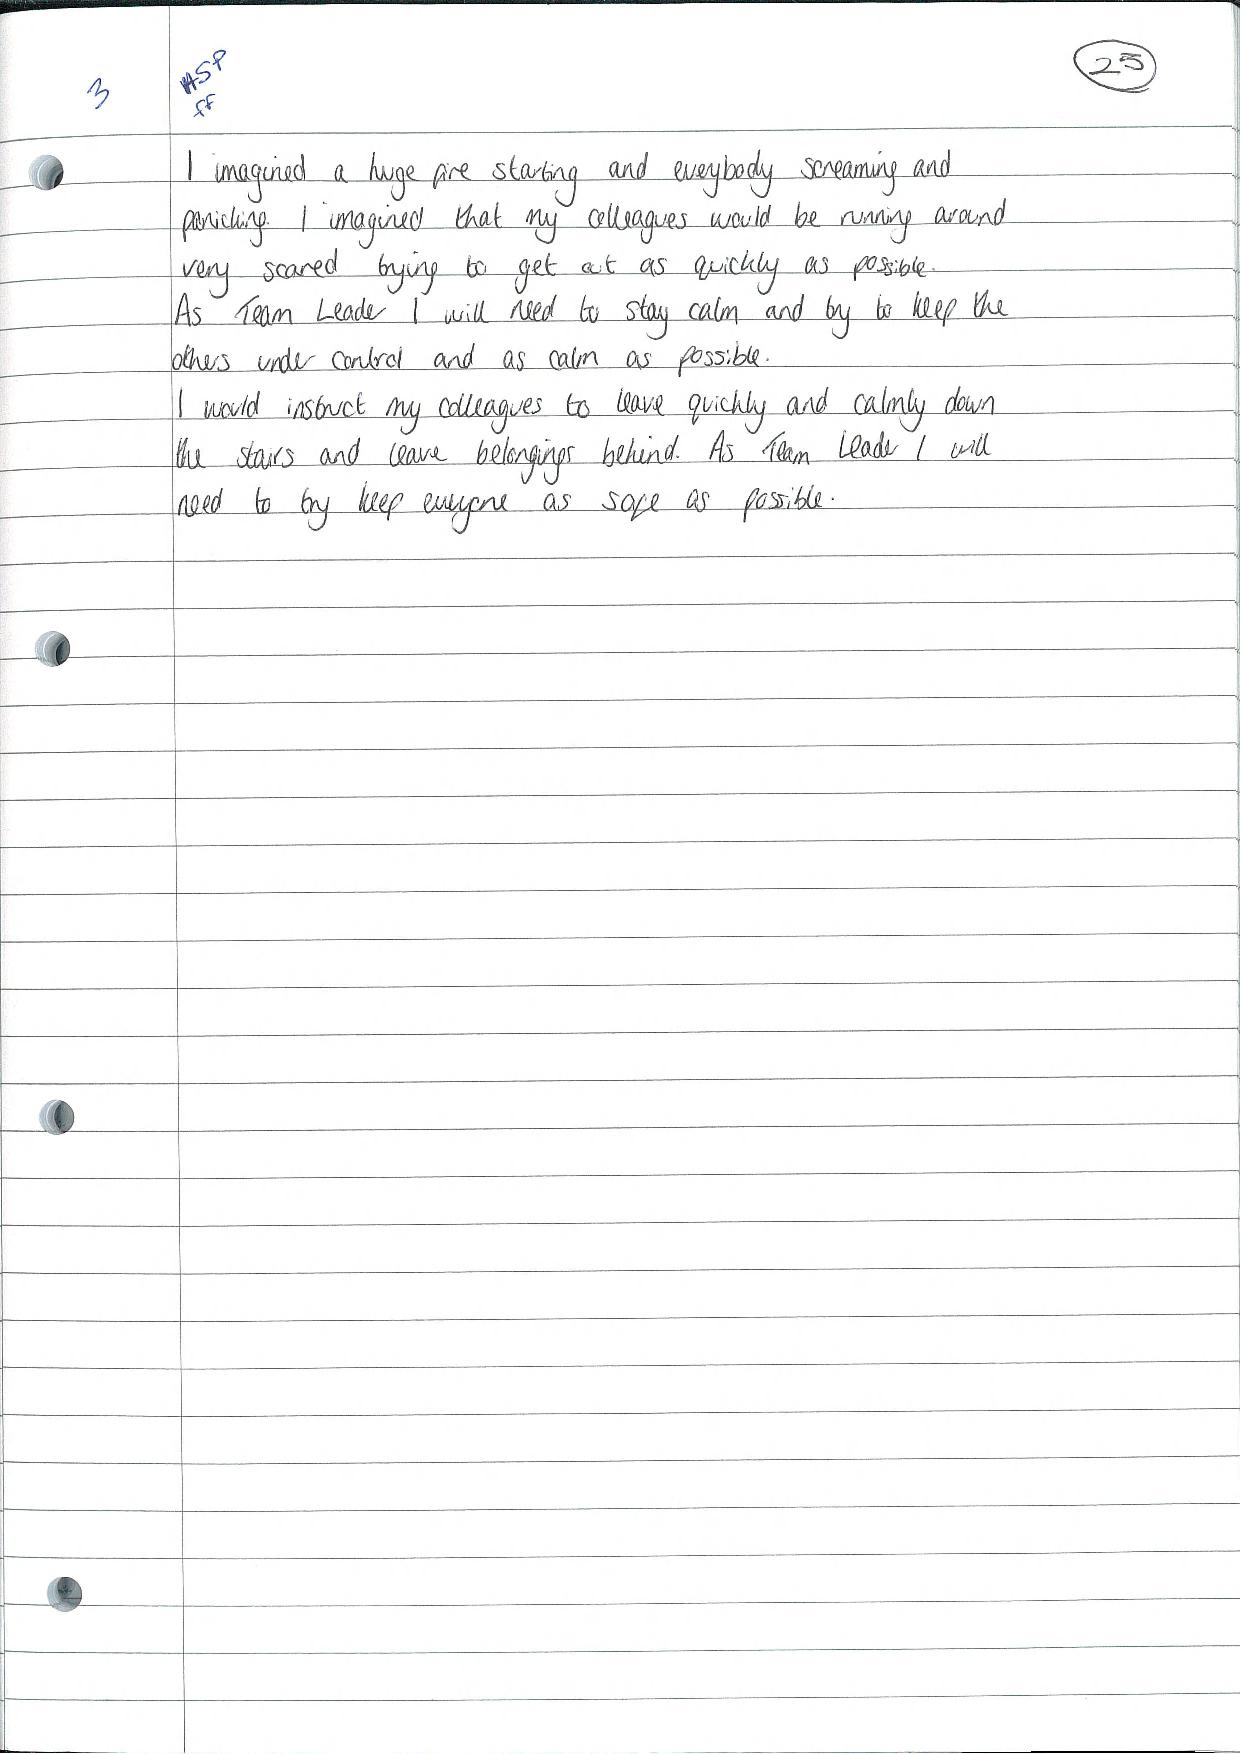 3
HSP
FF
25
I imagined a huge fire starting and eveybody screaming and
panicking. I imagined that my colleagues would be running around
very scared trying to get out as quickly as possible.
As Team Leader I will need to stay calm and try to keep the
others under control and as calm as possible.
I would instruct my colleagues to leave quickly and calmly down
the stairs and leave belongings behind. As Team Leader I will
need to try keep everyone as safe as possible.